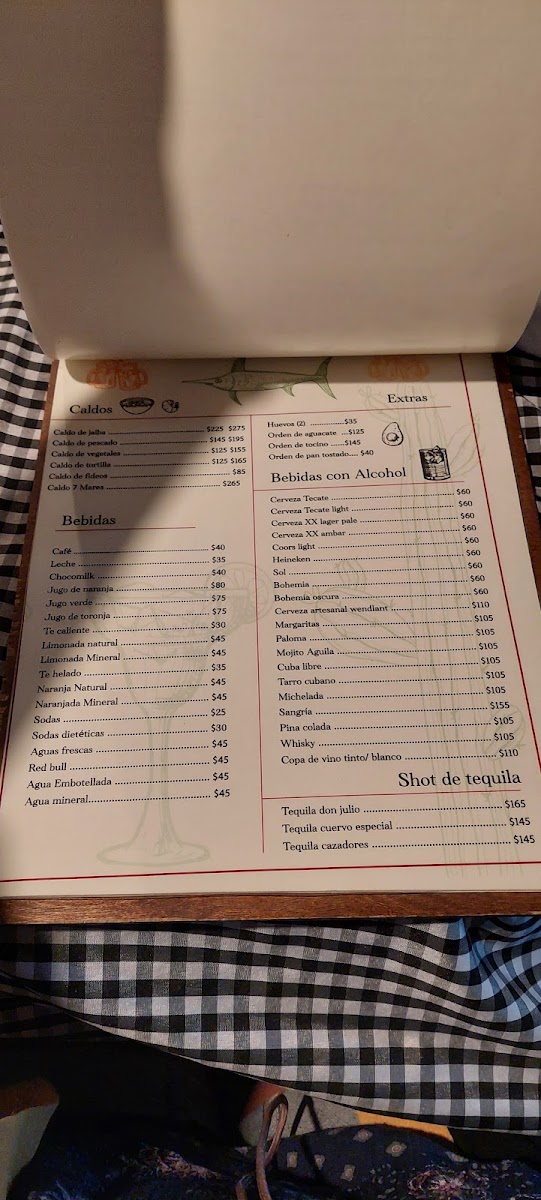 Caldos
Caldo de jaiba $225 $275
Caldo de pescado $145 $195
Caldo de vegetales $125 $155
Caldo de tortilla $125 $165
Caldo de fideos $85
Caldo 7 Mares $265
Bebidas
Café $40
Leche $35
Chocomilk $40
Jugo de naranja $80
Jugo verde $75
Jugo de toronja $75
Te caliente $30
Limonada natural $45
Limonada Mineral $45
Te helado $35
Naranja Natural $45
Naranjada Mineral $45
Sodas $25
Sodas dietéticas $30
Aguas frescas $45
Red bull $45
Agua Embotellada $45
Agua mineral $45
Extras
Huevos (2) $35
Orden de aguacate $125
Orden de tocino $145
Orden de pan tostado $40
Bebidas con Alcohol
Cerveza Tecate $60
Cerveza Tecate light $60
Cerveza XX lager pale $60
Cerveza XX ambar $60
Coors light $60
Heineken $60
Sol $60
Bohemia $60
Bohemia oscura $60
Cerveza artesanal wendlant $110
Margaritas $105
Paloma $105
Mojito Aguila $105
Cuba libre $105
Tarro cubano $105
Michelada $105
Sangría $155
Pina colada $105
Whisky $105
Copa de vino tinto/ blanco $110
Shot de tequila
Tequila don julio $165
Tequila cuervo especial $145
Tequila cazadores $145